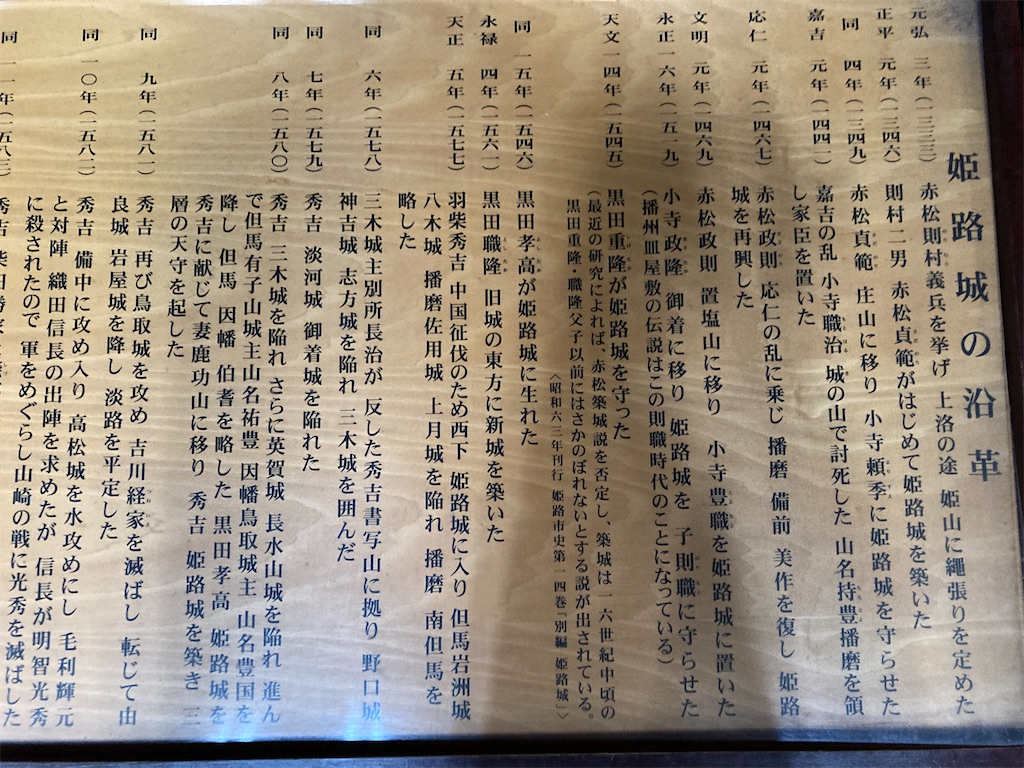 姫路城の沿革
元弘 三年(一三三三) 赤松則村義兵を挙げ 上洛の途 姫山に縄張りを定めた
正平 元年(一三四六) 則村二男 赤松貞範がはじめて姫路城を築いた
同 四年(一三四九) 赤松貞範 庄山に移り 小寺頼季に姫路城を守らせた
嘉吉 元年(一四四一) 嘉吉の乱 小寺職治 城の山で討死した 山名持豊播磨を領
し家臣を置いた
応仁 元年(一四六七) 赤松政則 応仁の乱に乗じ 播磨 備前 美作を復し 姫路
城を再興した
文明 元年(一四六九) 赤松政則 置塩山に移り 小寺豊職を姫路城に置いた
永正一六年(一五一九) 小寺政隆 御着に移り 姫路城を 子則職に守らせた
(播州皿屋敷の伝説はこの則職時代のことになっている)
天文一四年(一五四五) 黒田重隆が姫路城を守った
(最近の研究によれば、赤松築城説を否定し、築城は一六世紀中頃の
黒田重隆・職隆父子以前にはさかのぼれないとする説が出されている。
〈昭和六三年刊行 姫路市史第一四巻「別編 姫路城」〉
同 一五年(一五四六) 黒田孝高が姫路城に生れた
永禄 四年(一五六一) 黒田職隆 旧城の東方に新城を築いた
天正 五年(一五七七) 羽柴秀吉 中国征伐のため西下 姫路城に入り 但馬岩洲城
八木城 播磨佐用城 上月城を陥れ 播磨 南但馬を
略した
同 六年(一五七八) 三木城主別所長治が 反した秀吉書写山に拠り 野口城
神吉城 志方城を陥れ 三木城を囲んだ
同 七年(一五七九) 秀吉 淡河城 御着城を陥れた
同 八年(一五八〇) 秀吉 三木城を陥れ さらに英賀城 長水山城を陥れ 進ん
で但馬有子山城主山名祐豊 因幡鳥取城主 山名豊国を
降し 但馬 因幡 伯耆を略した 黒田孝高 姫路城を
秀吉に献じて妻鹿功山に移り 秀吉 姫路城を築き 三
層の天守を起した
同 九年(一五八一) 秀吉 再び鳥取城を攻め 吉川経家を滅ぼし 転じて由
良城 岩屋城を降し 淡路を平定した
同 一〇年(一五八二) 秀吉 備中に攻め入り 高松城を水攻めにし 毛利輝元
と対陣 織田信長の出陣を求めたが 信長が明智光秀
に殺されたので 軍をめぐらし山崎の戦に光秀を滅ぼした
同 一一年(一五八三 秀吉 柴田勝家